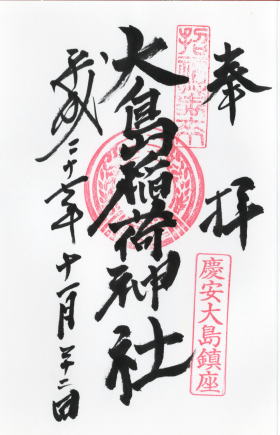 奉拝
慶安大島鎮座
大島稲荷神社
平成二十六年十一月二十二日